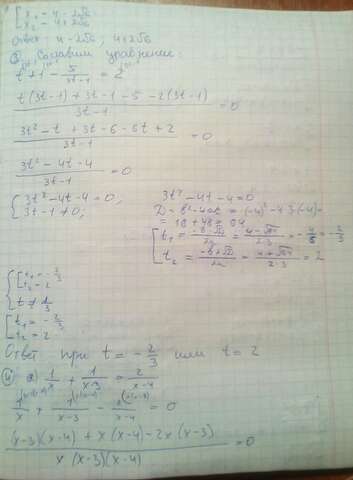 [x₁ = 4 - 2√6
[x₂ = 4 + 2√6
Ответ: 4 - 2√6 ; 4 + 2√6
③ Составим уравнение:
t + 1 - 5/(3t-1) = 2
(t(3t-1) + 3t-1 - 5 - 2(3t-1))/(3t-1) = 0
(3t² - t + 3t - 6 - 6t + 2)/(3t-1) = 0
(3t² - 4t - 4)/(3t-1) = 0
{3t² - 4t - 4 = 0;
{3t - 1 ≠ 0;
3t² - 4t - 4 = 0
D = b² - 4ac = (-4)² - 4·3·(-4) =
= 16 + 48 = 64
[t₁ = (-b-√D)/2a = (4-√64)/(2·3) = -4/6 = -2/3
[t₂ = (-b+√D)/2a = (4+√64)/(2·3) = 2
{[t₁ = -2/3
{[t₂ = 2
{t ≠ 1/3
[t₁ = -2/3
[t₂ = 2
Ответ при t = -2/3 или t = 2
④ а) 1/x + 1/(x-3) = 2/(x-4)
1/x + 1/(x-3) - 2/(x-4) = 0
((x-3)(x-4) + x(x-4) - 2x(x-3))/(x(x-3)(x-4)) = 0